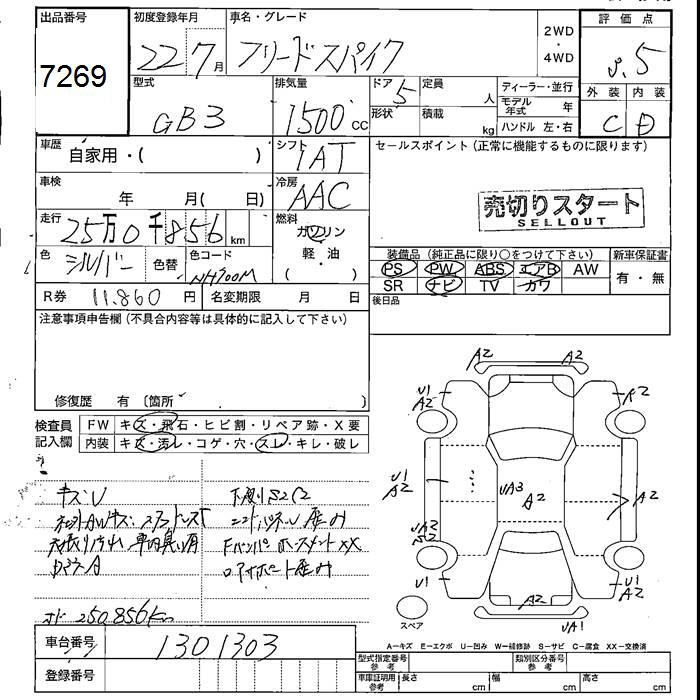 出品番号
7269
初度登録年月
22 7月
車名・グレード
フリードスパイク
2WD
・
4WD
評価点
3.5
型式
GB3
排気量
1500cc
ドア 5
形状
定員 人
積載 kg
ディーラー・並行
モデル年式 年
ハンドル 左・右
外装 内装
C D
車歴 自家用・( )
シフト
IAT
セールスポイント(正常に機能するものに限ります)
車検 年 月( 日)
冷房
AAC
売切りスタート
SELLOUT
走行
25万0千856km
燃料
ガソリン
軽・油
( )
色 シルバー 色替 色コード NH700M
装備品(純正品に限り○をつけて下さい) 新車保証書
PS PW ABS エアB AW
SR ナビ TV カワ
有・無
R券 11,860円 名変期限 月 日
後日品
注意事項申告欄(不具合内容等は具体的に記入して下さい)
修復歴 有 〔箇所 〕
検査員記入欄
FW キズ・飛石・ヒビ割・リペア跡・X要
内装 キズ・汚レ・コゲ・穴・スレ・キレ・破レ
キズU
下廻りS2C2
ODO 250,856km
A2 A2
U1 A2
A2
U1 A2
UA3
A2
A2
UA2 S2
U1
U1 A2
A2
UA1
スペア
A−キズ E−エクボ U−凹み W−補修跡 S−サビ C−腐食 XX−交換済
車台番号
1301303
登録番号
型式指定番号 参考
類別区分番号 参考
車庫証明用 参考
長さ cm
幅 cm
高さ cm